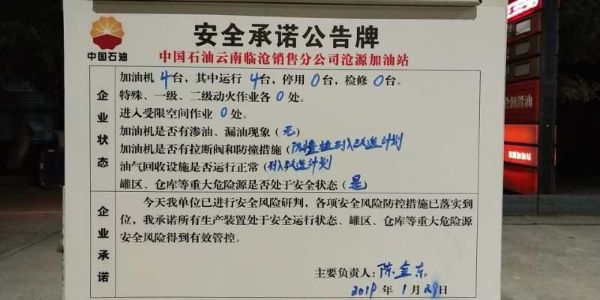 安全承诺公告牌
中国石油
中国石油云南临沧销售分公司沧源加油站
企业状态
加油机4台，其中运行4台，停用0台，检修0台。
特殊、一级、二级动火作业各0处。
进入受限空间作业0处。
加油机是否有渗油、漏油现象（无）
加油机是否有拉断阀和防撞措施（防撞柱列入改造计划
油气回收设施是否运行正常（列入改造计划
罐区、仓库等重大危险源是否处于安全状态（是）
企业承诺
今天我单位已进行安全风险研判，各项安全风险防控措施已落实到
位，我承诺所有生产装置处于安全运行状态、罐区、仓库等重大危险源
安全风险得到有效管控。
主要负责人：陈金东
2019年1月29日
润滑油